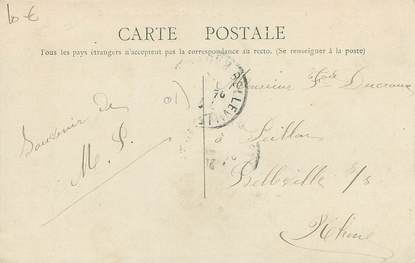 10 €
CARTE POSTALE
Tous les pays étrangers n'acceptent pas la correspondance au recto. (Se renseigner à la poste)
Souvenir de
M. S.
Monsieur Ducroux
à
Belleville s/s
Rhône
BELLEVILLE